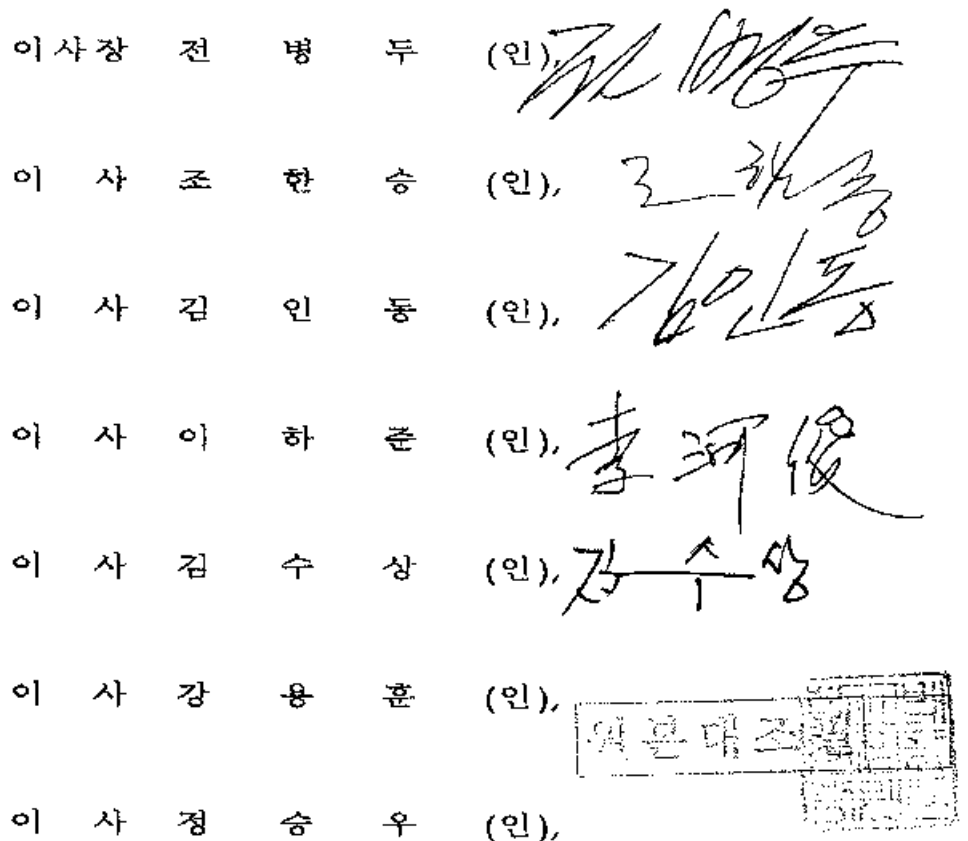 이 사 장 전 병 두 (인), 전 병 두
이 사 조 한 승 (인), 조 한 승
이 사 김 인 동 (인), 김 인 동
이 사 이 하 준 (인), 李 河 俊
이 사 김 수 상 (인), 김 수 상
이 사 강 용 훈 (인),
원본대조필
이 사 정 승 우 (인),